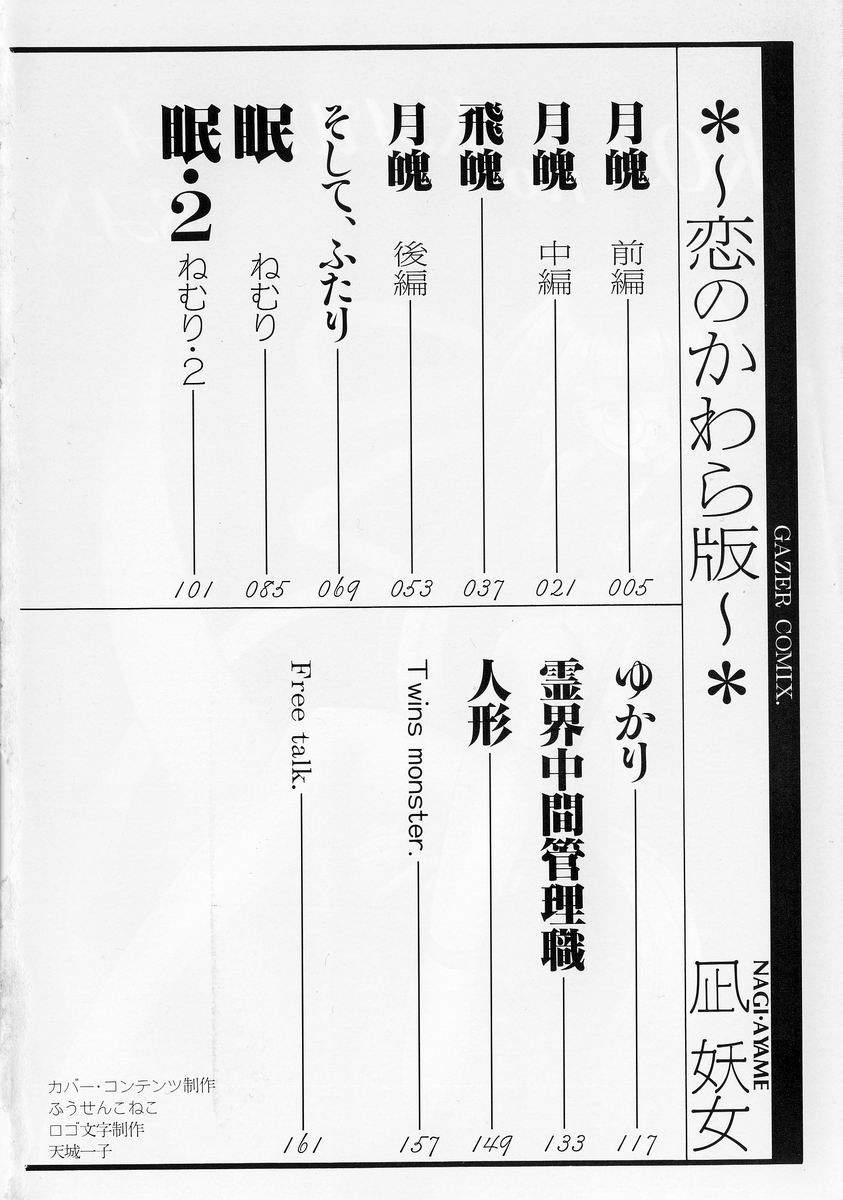 GAZER COMIX.
*~恋のかわら版~*
凪 妖女
NAGI・AYAME
月魄 前編 005
月魄 中編 021
飛魄 037
月魄 後編 053
そして、ふたり 069
眠 ねむり 085
眠・2 ねむり・2 101
ゆかり 117
霊界中間管理職 133
人形 149
Twins monster. 157
Free talk. 161
カバー・コンテンツ制作
ふうせんこねこ
ロゴ文字制作
天城一子